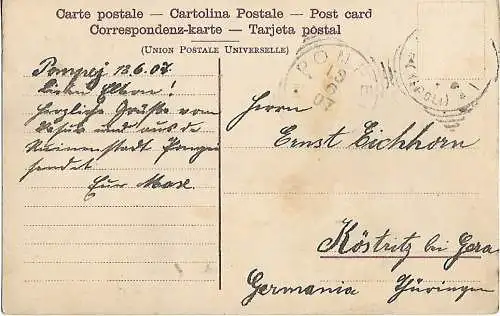 Carte postale — Cartolina Postale — Post card
Correspondenz-karte — Tarjeta postal
(UNION POSTALE UNIVERSELLE)
Pompej 13.6.07.
Lieben Eltern!
Herzliche Grüße vom
Vesuv und aus de
Ruinenstadt Pompei
sendet
Euer Max
POMPEI
13
6
07
(NAPOLI)
Herrn
Ernst Eichhorn
Köstritz bei Gera
Germania Thüringen